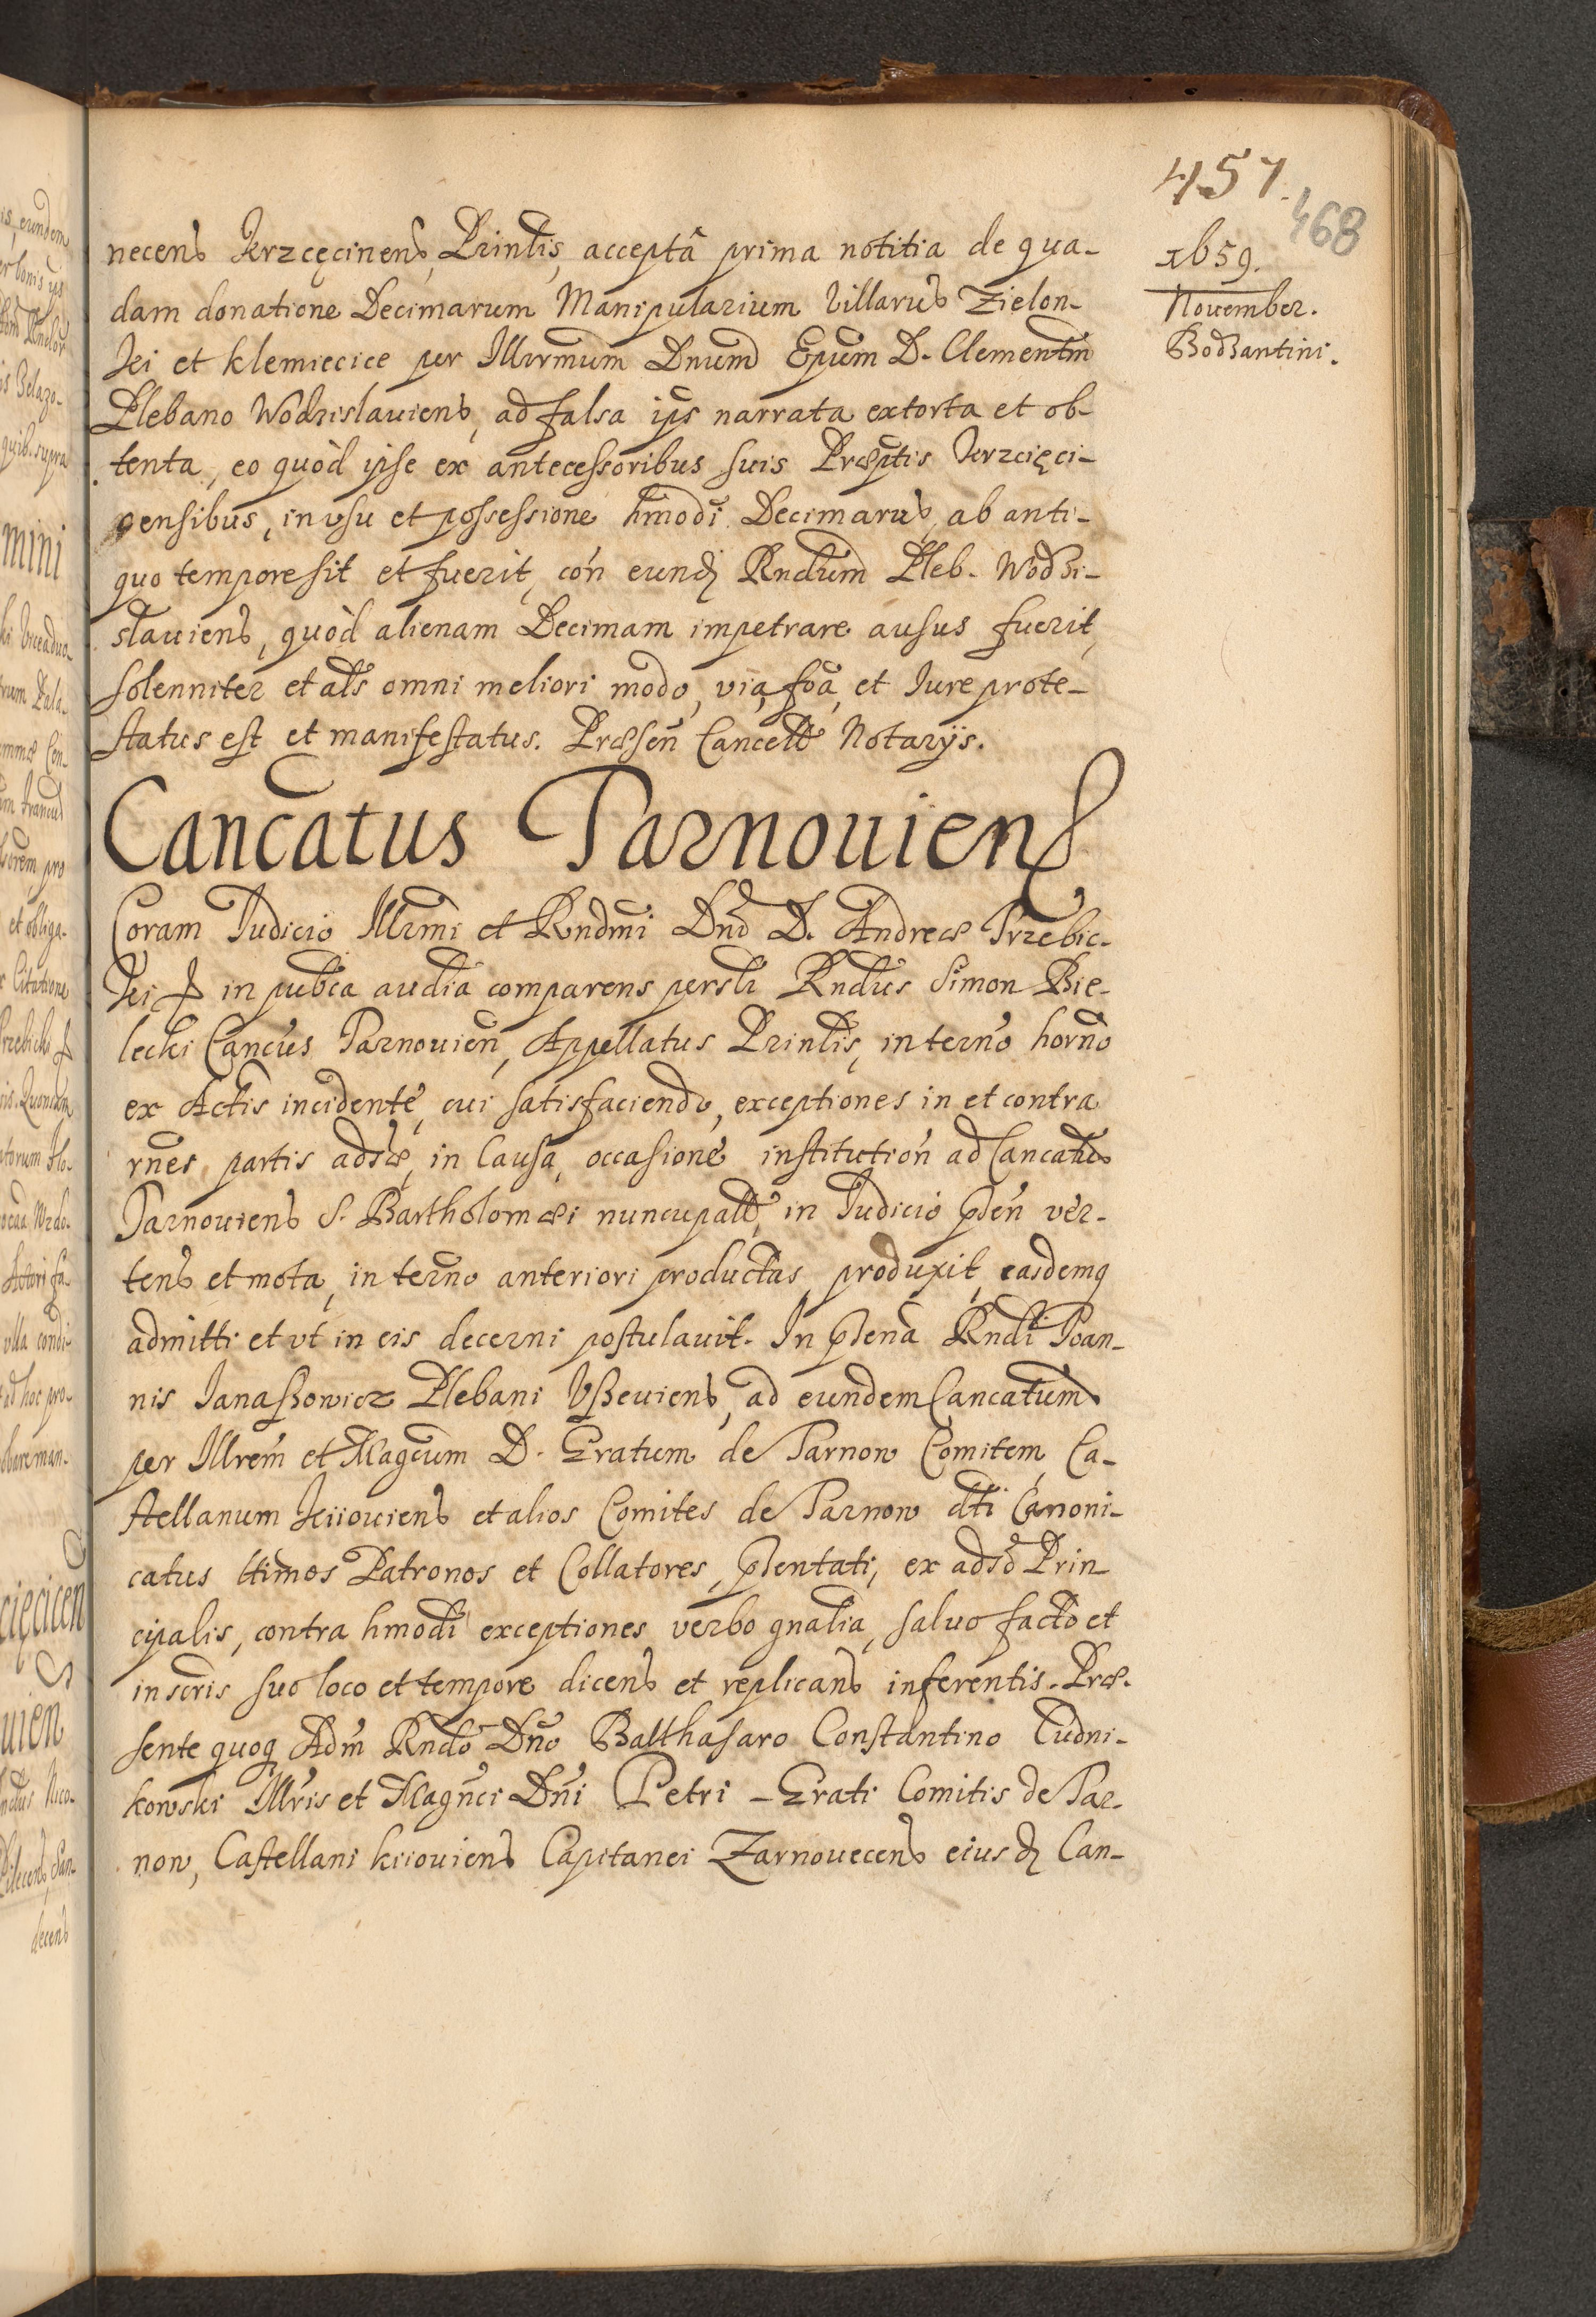 457.
468
1659.
November.
Bodzantini.
necens Krzcęcinens, Prinlis, acceptâ prima notitia de qua-
dam donatione Decimarum Manipularium Villarum Zielon-
ki et Klemiecice per Illmrmum Dnum Epum D. Clementin
Plebano Wodzislauiens, ad falsa ips narrata extorta et ob-
tenta, eo quòd ipse ex antecessoribus suis Præptis Krzcięci-
censibus, in vsu et possessione hmodi Decimarum, ab anti-
quo tempore sit et fuerit, con eund Rndum Pleb. Wodzi-
slauiens, quòd alienam Decimam impetrare ausus fuerit,
solenniter et als omni meliori modo, via, foa, et Iure prote-
status est et manifestatus. Præsen Cancell Notarijs.
Cancatus Tarnouiens
Coram Iudicio Illrmi et Rndmi Dni D. Andreæ Trzebic-
ki &c in pubca audia comparens persli Rndus Simon Bie-
lecki Cancus Tarnouien, Appellatus Prinlis, in terno horno
ex Actis incidente, cui satisfaciendo, exceptiones in et contra
rnes partis adsæ, in Causa, occasione institution ad Cancatum
Tarnouiens S. Bartholomæi nuncupatt, in Iudicio pñti ver-
tens et mota, in terno anteriori productas, produxit, easdemq
admitti et vt in eis decerni postulauit. In pñtia Rndi Ioan-
nis Ianaszowicz Plebani Vszeuiens, ad eundem Cancatum
per Illrem et Magcum D. Gratum de Tarnow Comitem, Ca-
stellanum Kiiouiens et alios Comites de Tarnow dti Canoni-
catus ltimos Patronos et Collatores, pñtentati, ex adso Prin
cipalis, contra hmodi exceptiones verbo gnalia, saluo facto et
in scris suo loco et tempore dicens et replicans inferentis. Præ-
sente quoq Adm Rndo Dno Balthasaro Constantino Cudni-
kowski Illris et Magnci Dni Petri - Grati Comitis de Tar-
now, Castellani kiiouiens Capitanei Zarnouecens eiusd Can-